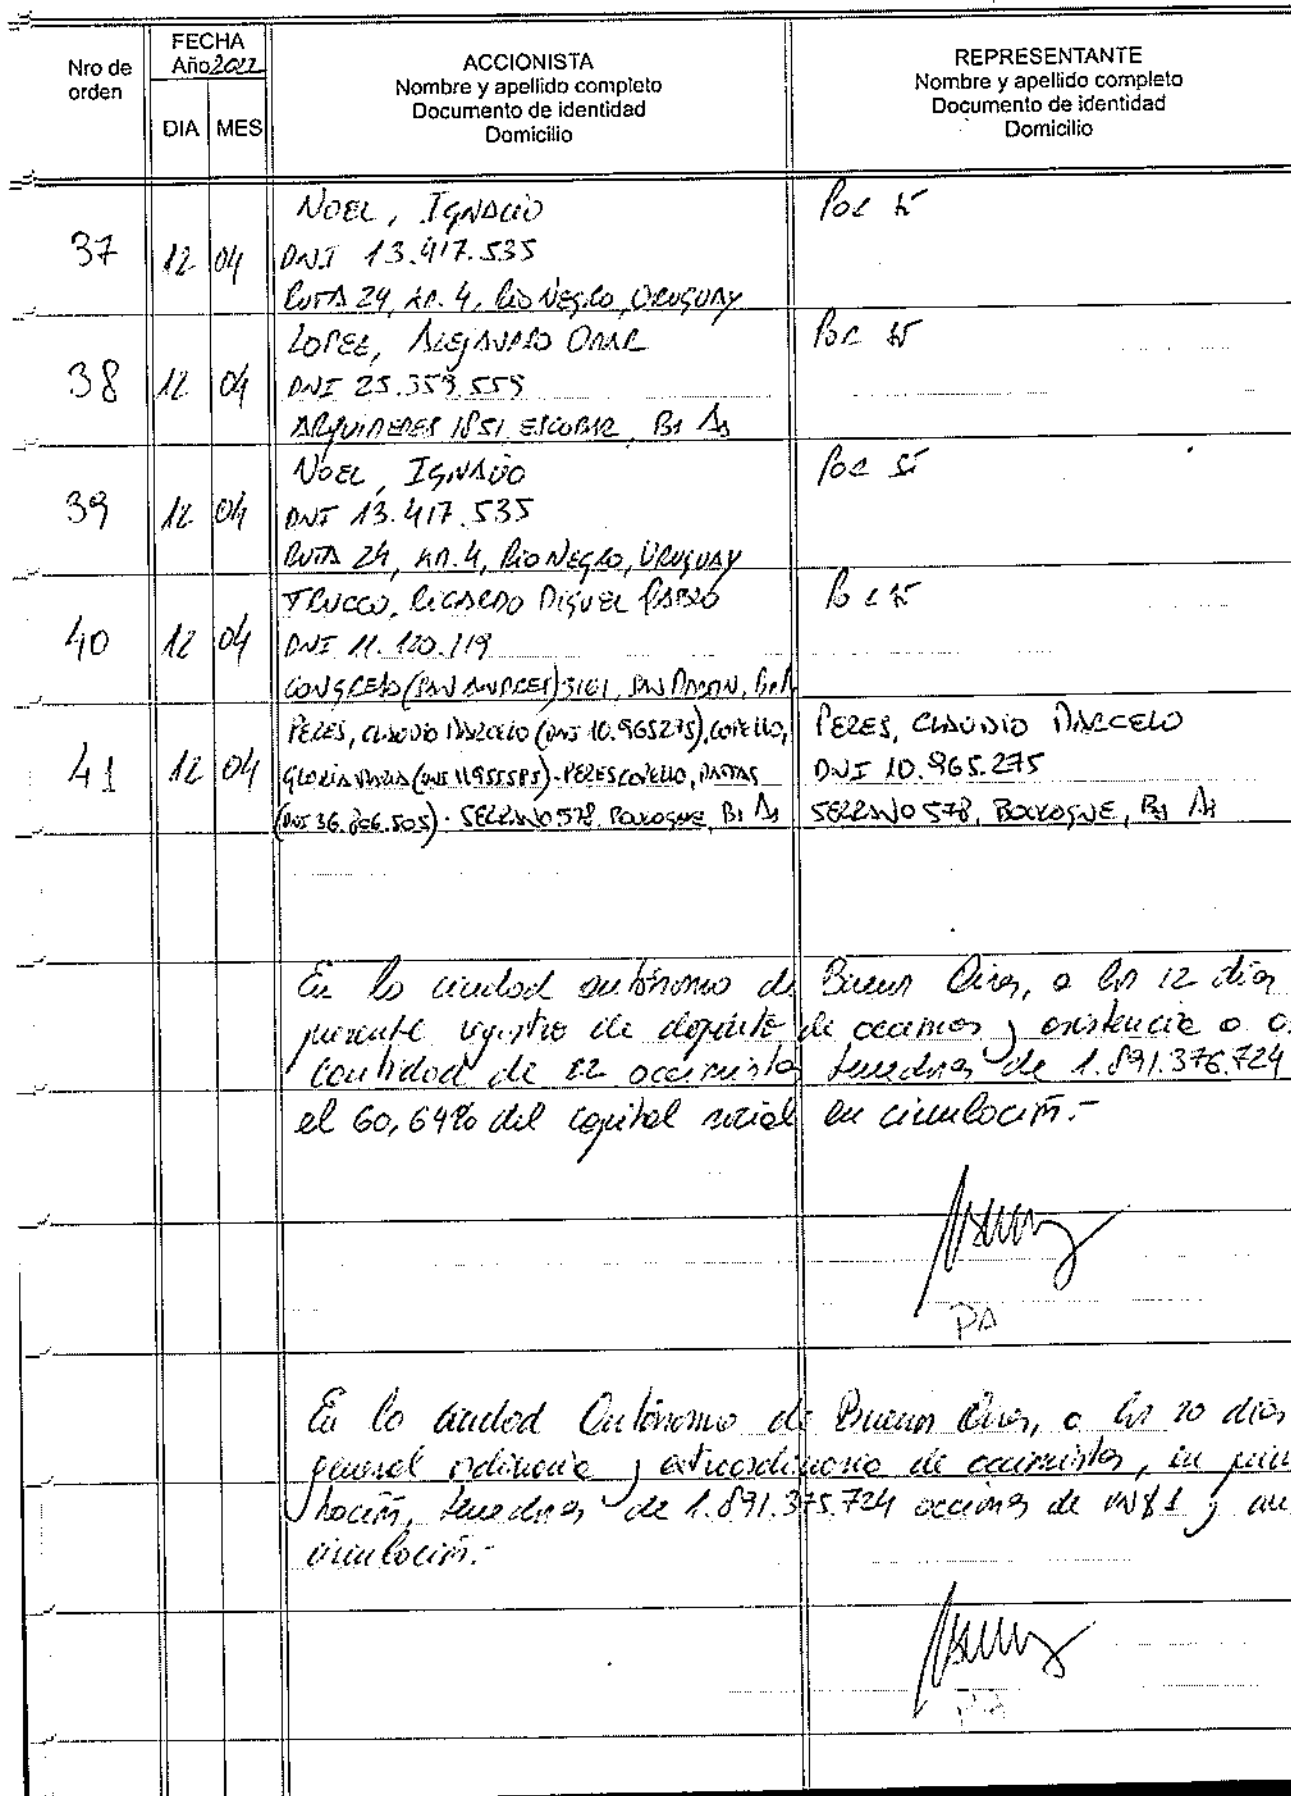 Nro de orden
FECHA
Año 2022
DIA MES
ACCIONISTA
Nombre y apellido completo
Documento de identidad
Domicilio
REPRESENTANTE
Nombre y apellido completo
Documento de identidad
Domicilio
37 12 04
NOEL, IGNACIO
DNI 13.417.535
RUTA 24, KM. 4, RIO NEGRO, URUGUAY
POR SI
38 12 04
LOPEZ, ALEJANDRO OMAR
DNI 25.359.559
ARQUIMEDES 1851 ESCOBAR, Bs As
POR SI
39 12 04
NOEL, IGNACIO
DNI 13.417.535
RUTA 24, KM. 4, RIO NEGRO, URUGUAY
POR SI
40 12 04
TRUCCO, RICARDO MIGUEL PABLO
DNI 11.120.119
CONGRESO (SAN ANDRES) 3161, SAN MARTIN, Bs A
POR SI
41 12 04
PERES, CLAUDIO MARCELO (DNI 10.965275), COPELLO,
GLORIA MARIA (DNI 11955585) - PERES COPELLO, MATIAS
(DNI 36.806.505) - SERRANO 578, BOULOGNE, Bs As
PERES, CLAUDIO MARCELO
DNI 10.965.275
SERRANO 578, BOULOGNE, Bs As
En la ciudad autónoma de Buenos Aires, a los 12 días
presente registro de depósito de acciones y asistencia a
cantidad de accionistas tenedores de 1.891.376.724
el 60,64% del capital social en circulación.-
PA
En la ciudad Autónoma de Buenos Aires, a los 20 días
general ordinaria y extraordinaria de accionistas, en
tenedores de 1.891.375.724 acciones de VN$1 y
circulación.-
PA